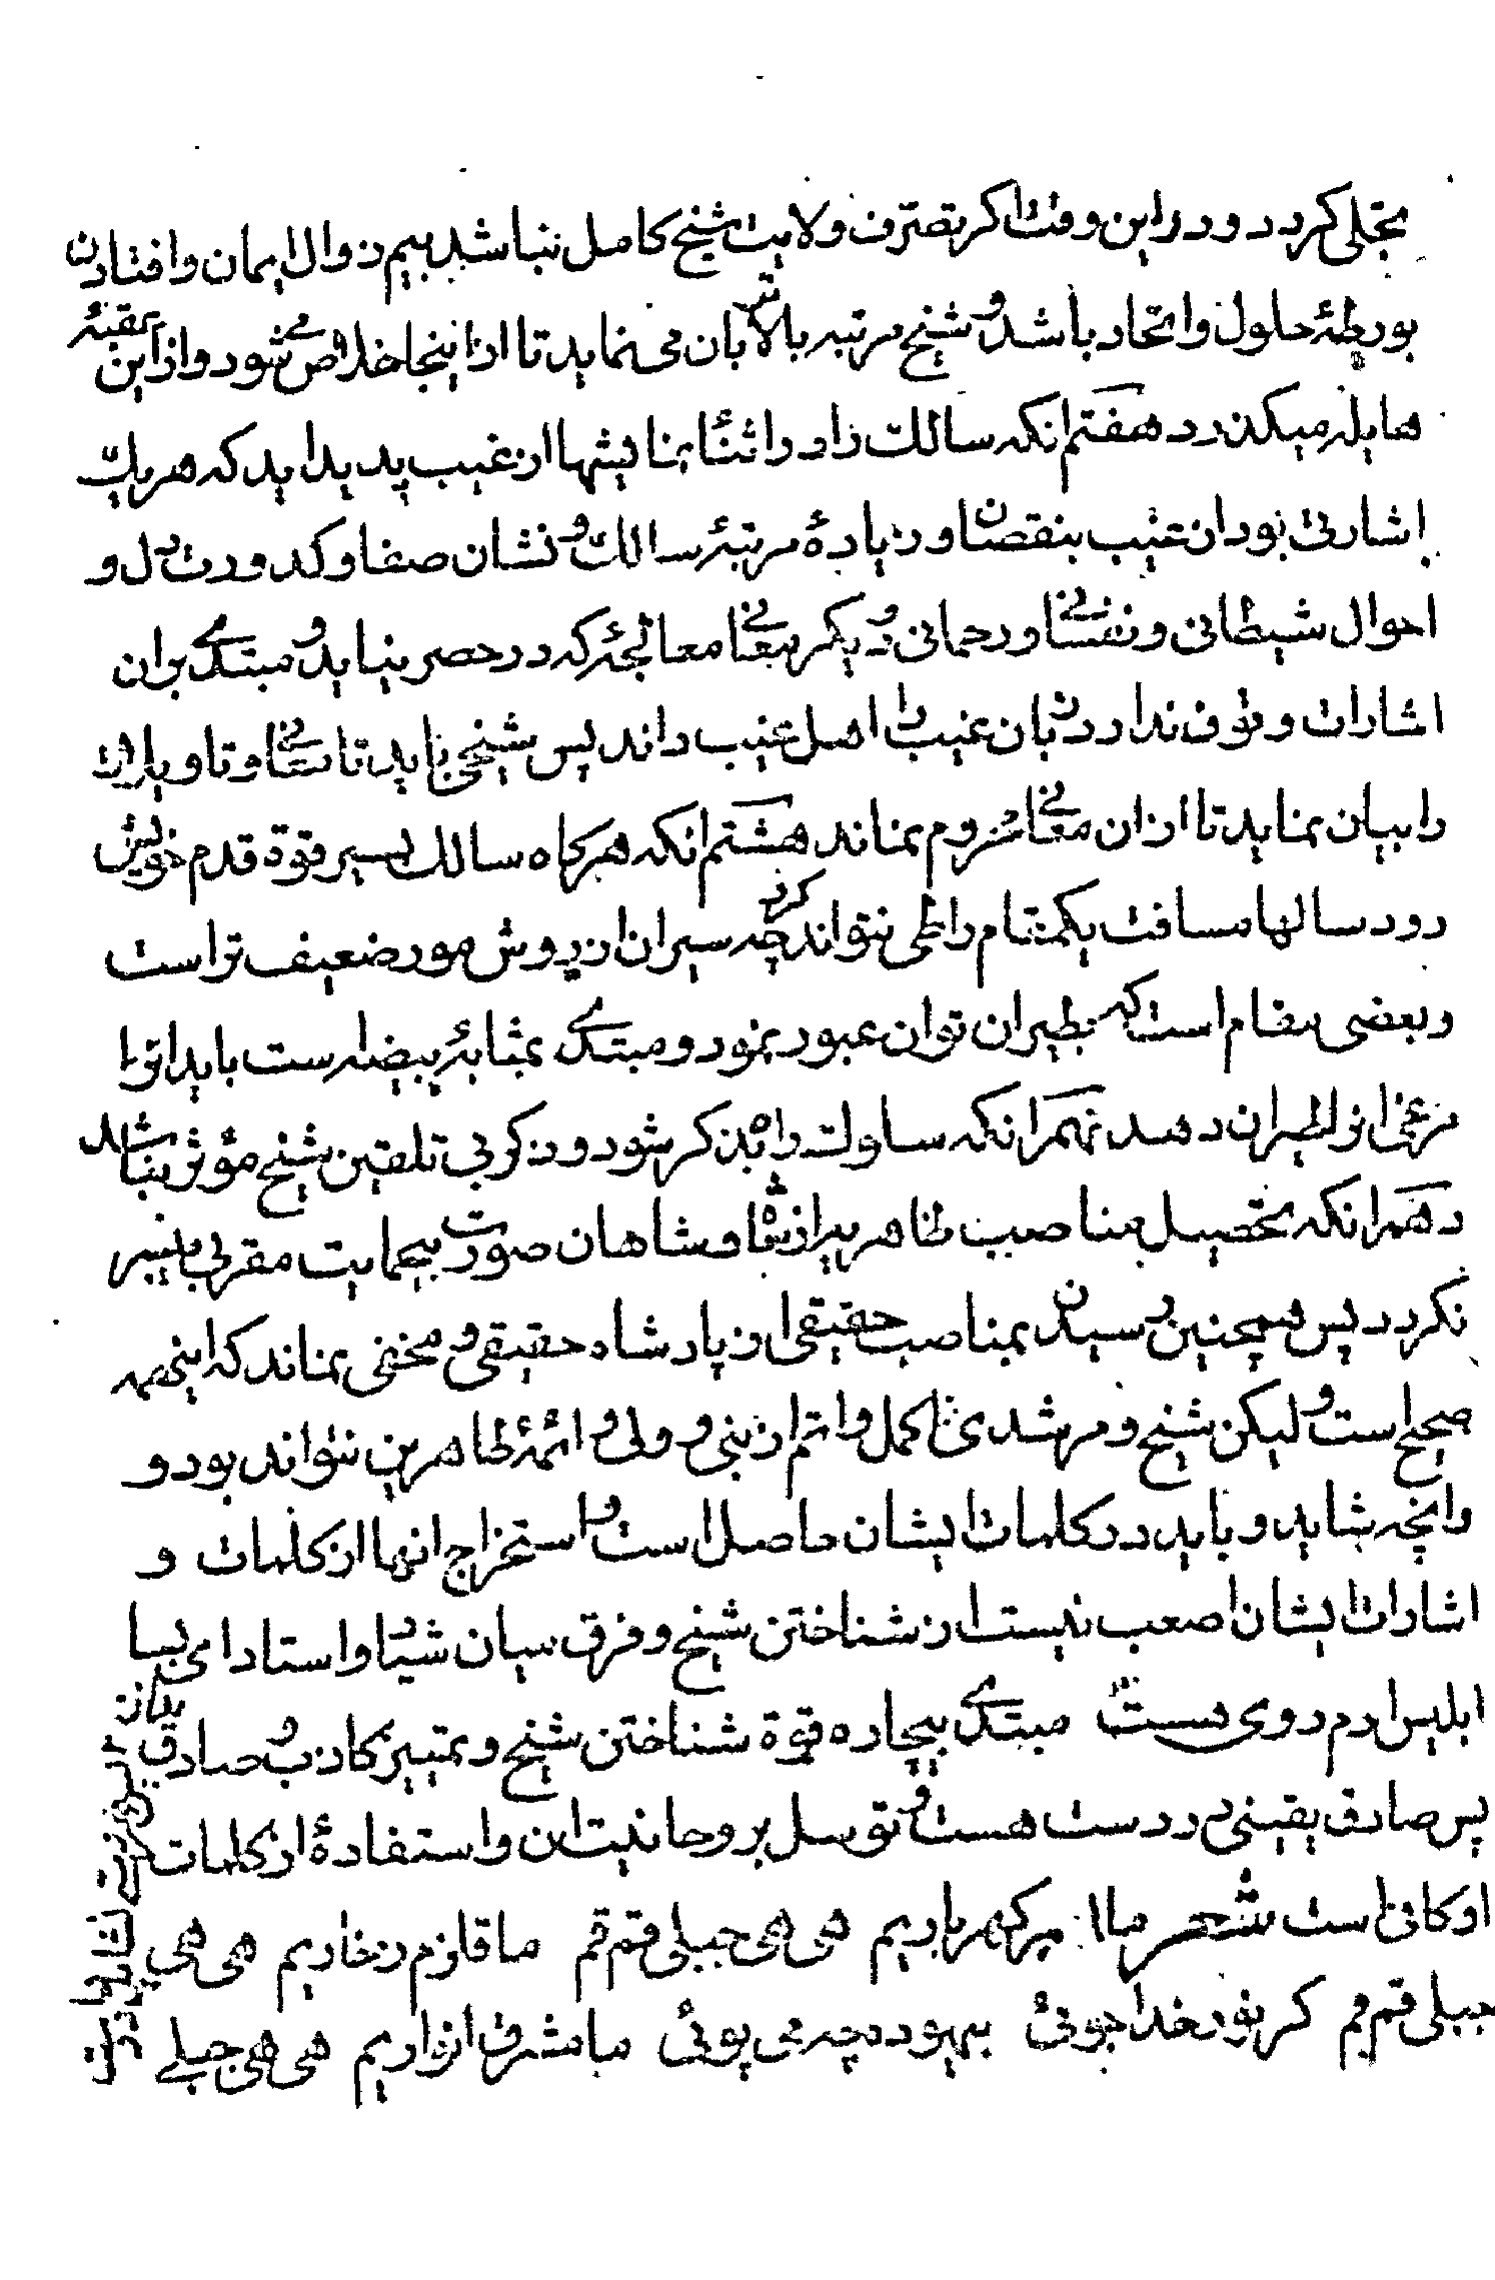 تجلی کردد و در این وقت اکر تصرّف ولایت شیخ کامل نباشد بیم زوال ایمان و افتادن
بورطهٔ حلول و اتحاد باشد و شیخ مرتبه بالاتر بان می نماید تا از اینجا خلاص می شود و از این عقبهٔ
هایله میکذرد هفتم انکه سالك را در اثنا نمایشها از غیب پدید اید که هریك
اشارتی بود از غیب بنقصان و زیادهٔ مرتبهٔ سالك و نشان صفا و کدورت دل و
احوال شیطانی و نفسانی و رحمانی و دیکر معانی معالجهٔ که در حصر نیاید و مبتدی بران
اشارات وقوف ندارد زبان غیب را اهل غیب داند پس شیخی باید تا معانی و تاویلات
را بیان نماید تا از ان معانی محروم نماند هشتم انکه هرکاه سالك بسیر قوة قدم خویش
رود سالها مسافت یکمقام را طی نتواند کرد چه سیر ان از روش مور ضعیف تر است
و بعضی مقام است که بطیران توان عبور نمود و مبتدی بمثابهٔ بیضه است باید او را
مرغی او طیران دهد نهم انکه سلوك راه بذکر شود و ذکر بی تلقین شیخ مؤثر نباشد
دهم انکه تحصیل مناصب ظاهریه از پادشاهان صورت بیحمایت مقربی میسر
نکردد پس همچنین رسیدن بمناصب حقیقی از پادشاه حقیقی و مخفی نماند که اینهمه
صحیح است و لیکن شیخ و مرشدی اکمل و اتم از نبی و ولی و ائمهٔ طاهرین نتواند بود و
وانچه شاید و باید در کلمات ایشان حاصل است و استخراج انها از کلمات و
اشارات ایشان اصعب نیست از شناختن شیخ و فرق میان شیاد و استاد ای بسا
ابلیس ادم روی هست مبتدی بیچاره قوة شناختن شیخ و تمییز کاذب و صادق ندارد
پس صادق یقینی در دست هست و توسل بروحانیت ان و استفادهٔ از کلمات
او کافی است شعر ما میر کهر باریم هی هی جبلی قم قم ما قلزم زخاریم هی هی
جبلی قم قم کر نور خدا جوئی بیهوده چه می پوئی ما مشرق انواریم هی هی جبلی